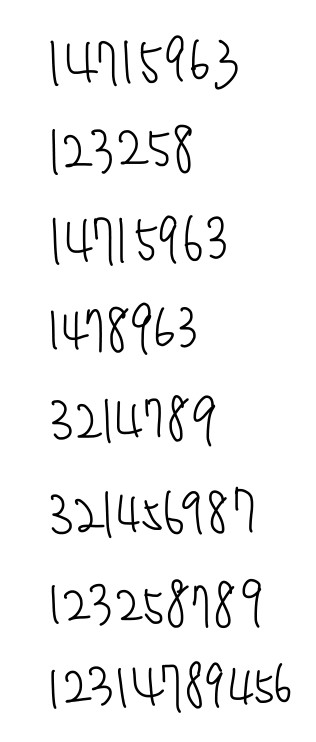 14715963
123258
14715963
1478963
3214789
321456987
123258789
12314789456